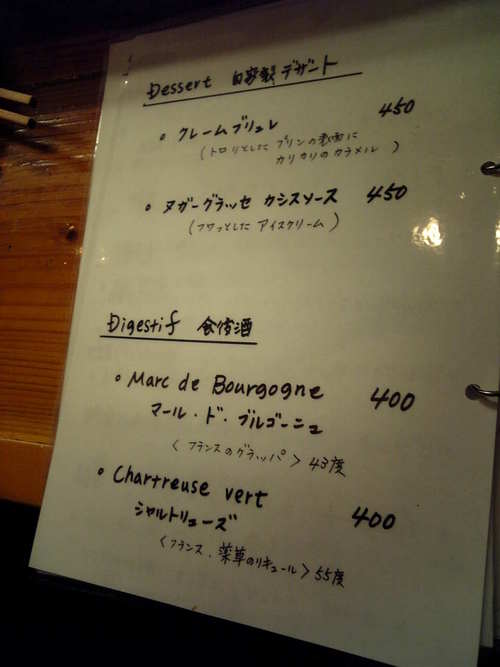 Dessert 自家製デザート
クレームブリュレ 450
(トロリとしたプリンの表面に
カリカリのカラメル)
ヌガーグラッセ カシスソース 450
(フワっとしたアイスクリーム)
Digestif 食後酒
Marc de Bourgogne 400
マール・ド・ブルゴーニュ
<フランスのグラッパ> 43度
Chartreuse vert
シャルトリューズ 400
<フランス・薬草のリキュール> 55度